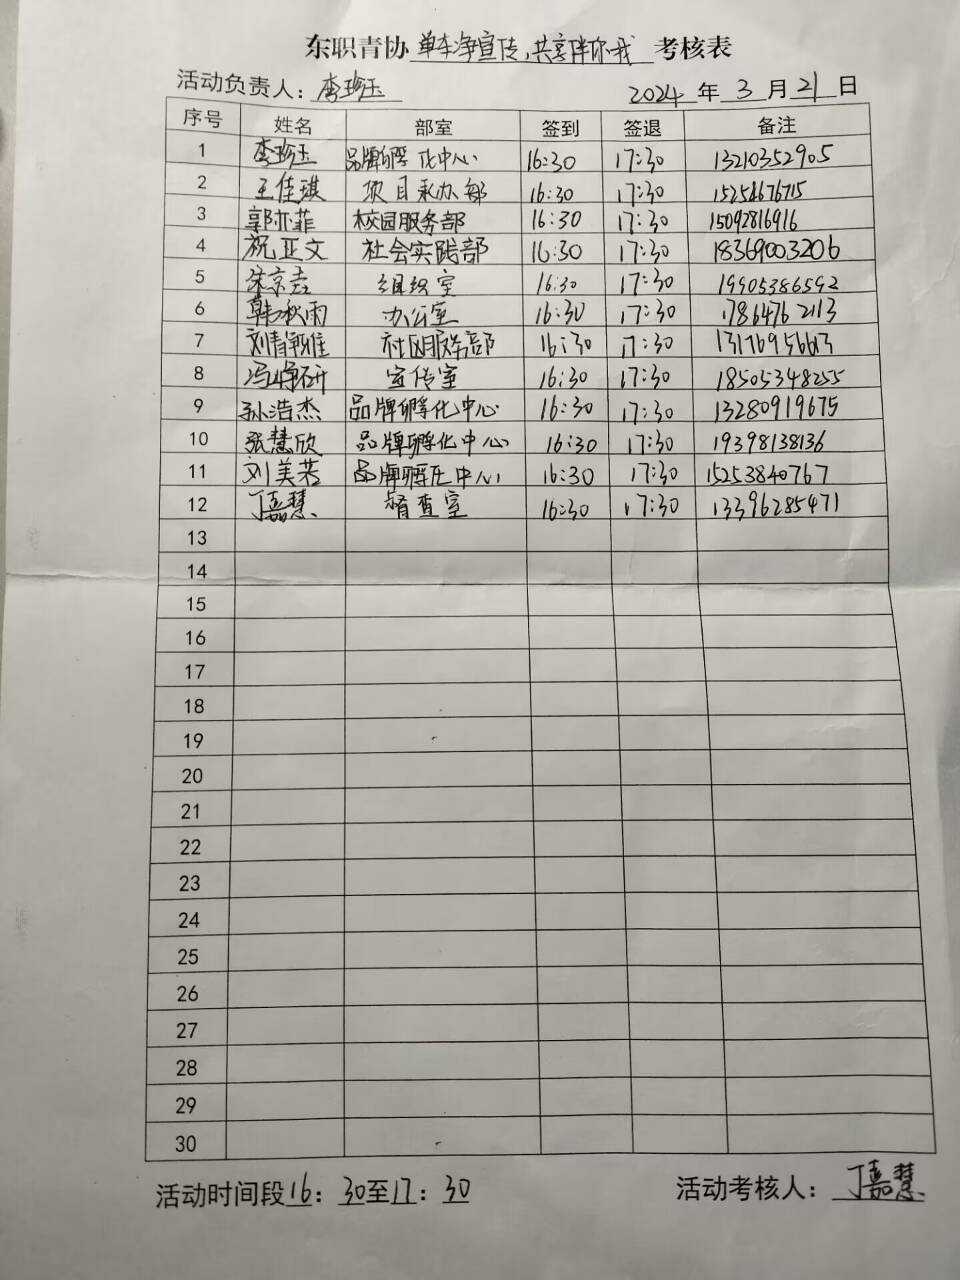 东职青协单车净宣传,共享伴你我考核表
活动负责人：李珍玉 2024年3月21日
序号 姓名 部室 签到 签退 备注
1 李珍玉 品牌孵化中心 16:30 17:30 13210352905
2 王佳琪 项目承办部 16:30 17:30 15254676715
3 郭亦菲 校园服务部 16:30 17:30 15092816916
4 祝亚文 社会实践部 16:30 17:30 18369003206
5 组织室 16:30 17:30 19905386592
6 韩秋雨 办公室 16:30 17:30 17864762113
7 刘静雅 社区服务部 16:30 17:30 13176956613
8 冯峥研 宣传室 16:30 17:30 18505348255
9 孙浩杰 品牌孵化中心 16:30 17:30 13280919675
10 张慧欣 品牌孵化中心 16:30 17:30 19398138136
11 刘美若 品牌孵化中心 16:30 17:30 15253840767
12 丁嘉慧 督查室 16:30 17:30 13396285471
13
14
15
16
17
18
19
20
21
22
23
24
25
26
27
28
29
30
活动时间段16：30至17：30 活动考核人：丁嘉慧